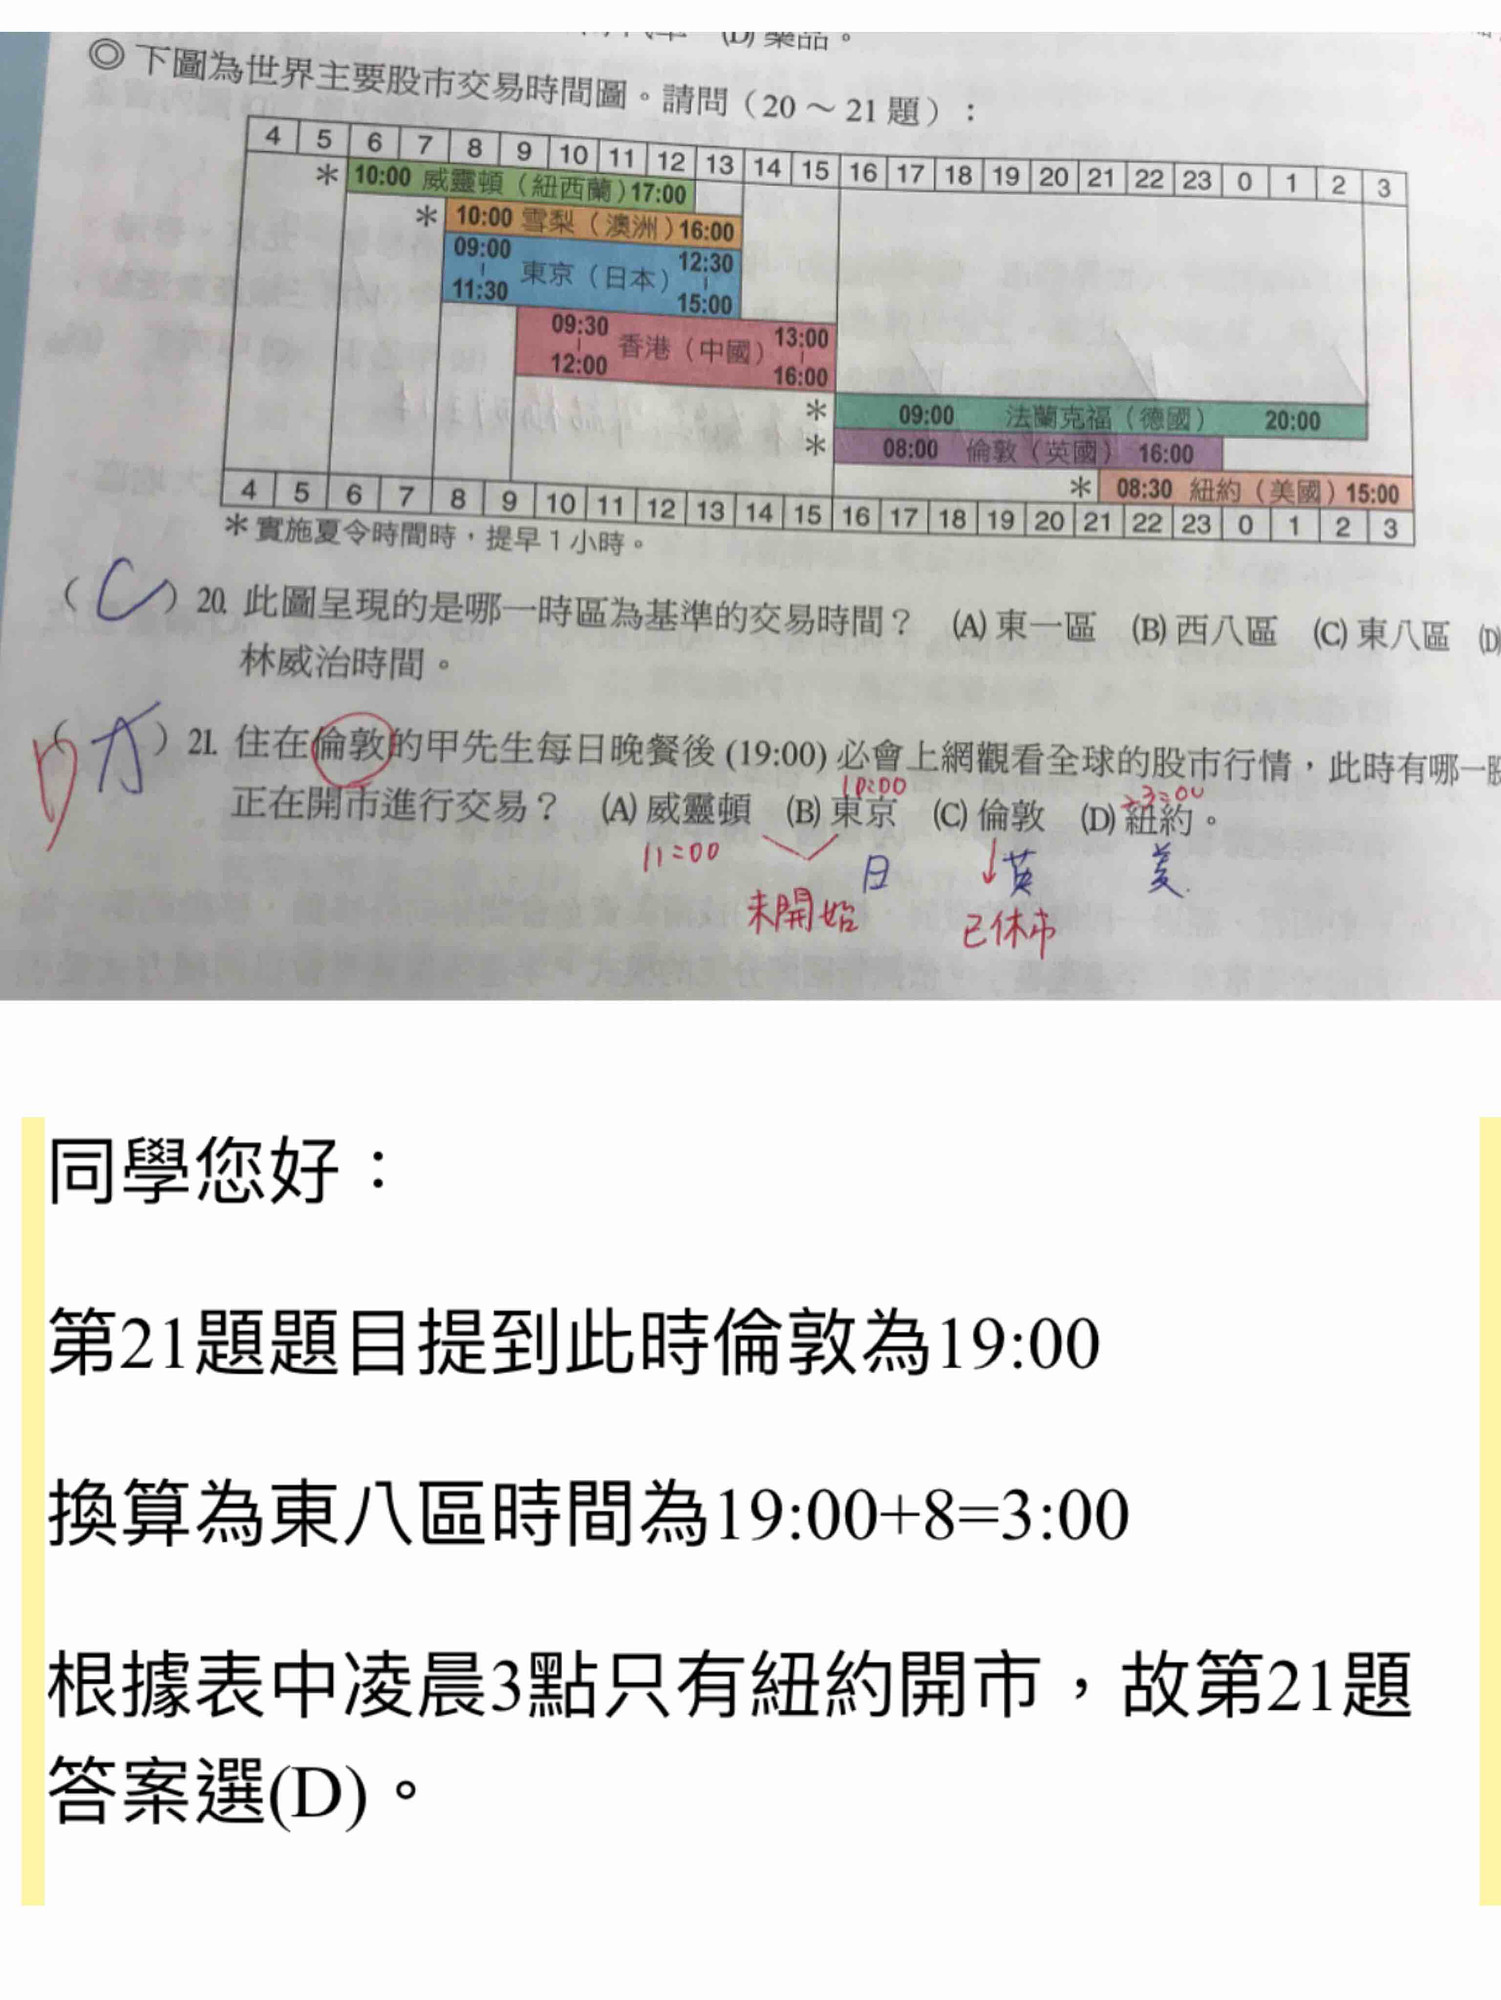 (D) 藥品。
◎下圖為世界主要股市交易時間圖。請問（20～21題）：
4 5 6 7 8 9 10 11 12 13 14 15 16 17 18 19 20 21 22 23 0 1 2 3
＊ 10:00 威靈頓（紐西蘭）17:00
＊ 10:00 雪梨（澳洲）16:00
09:00 12:30
東京（日本）
11:30 15:00
09:30 13:00
香港（中國）
12:00 16:00
＊ 09:00 法蘭克福（德國） 20:00
＊ 08:00 倫敦（英國） 16:00
＊ 08:30 紐約（美國）15:00
4 5 6 7 8 9 10 11 12 13 14 15 16 17 18 19 20 21 22 23 0 1 2 3
＊實施夏令時間時，提早1小時。
（C）20. 此圖呈現的是哪一時區為基準的交易時間？ (A)東一區 (B)西八區 (C)東八區 (D)
林威治時間。
（ ）21. 住在倫敦的甲先生每日晚餐後(19:00)必會上網觀看全球的股市行情，此時有哪一股
正在開市進行交易？ (A)威靈頓 (B)東京 (C)倫敦 (D)紐約。
11:00 日 英 美
未開始 已休市
同學您好：
第21題題目提到此時倫敦為19:00
換算為東八區時間為19:00+8=3:00
根據表中凌晨3點只有紐約開市，故第21題
答案選(D)。